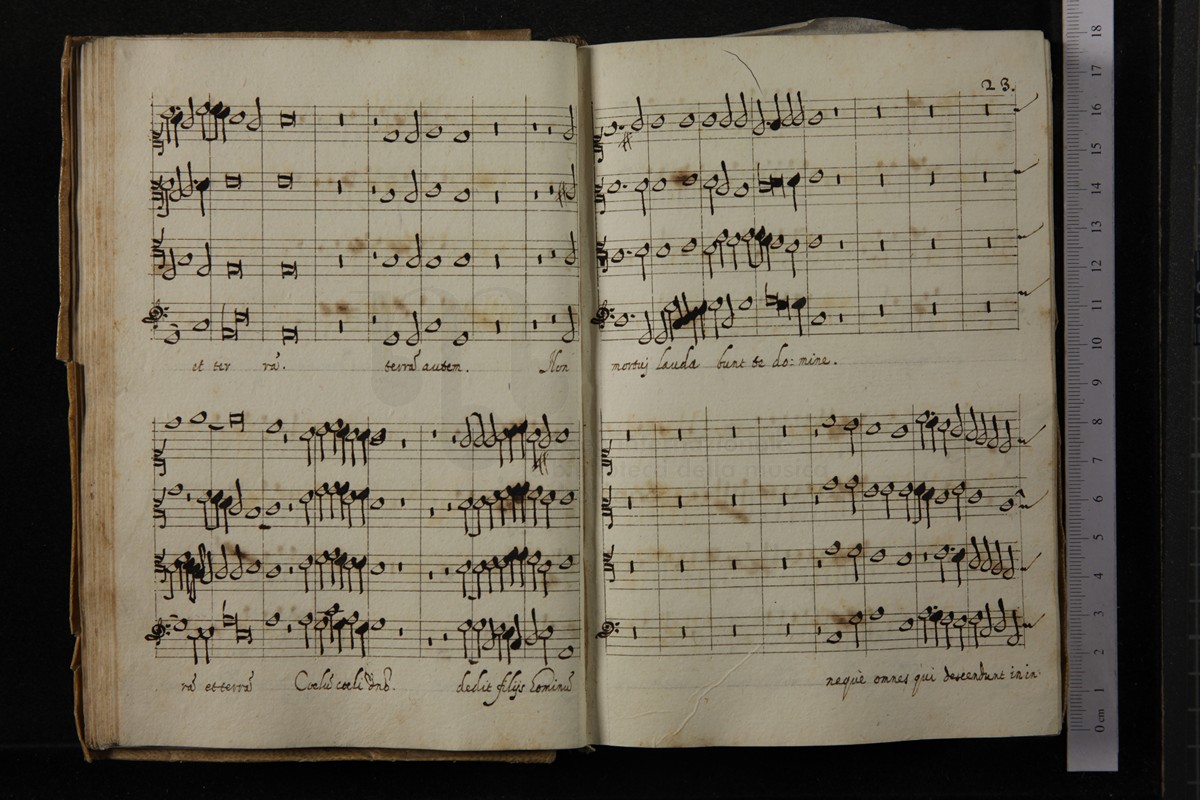 23.
et ter ra. terrã autem. Non
mortuj lauda bunt te do: mine.
rã et terrã Coelũ coeli dnõ. dedit filijs hominũ
nequè omnes qui descendunt in in
biblioteca della musica
18
17
16
15
14
13
12
11
10
9
8
7
6
5
4
3
2
1
0 cm